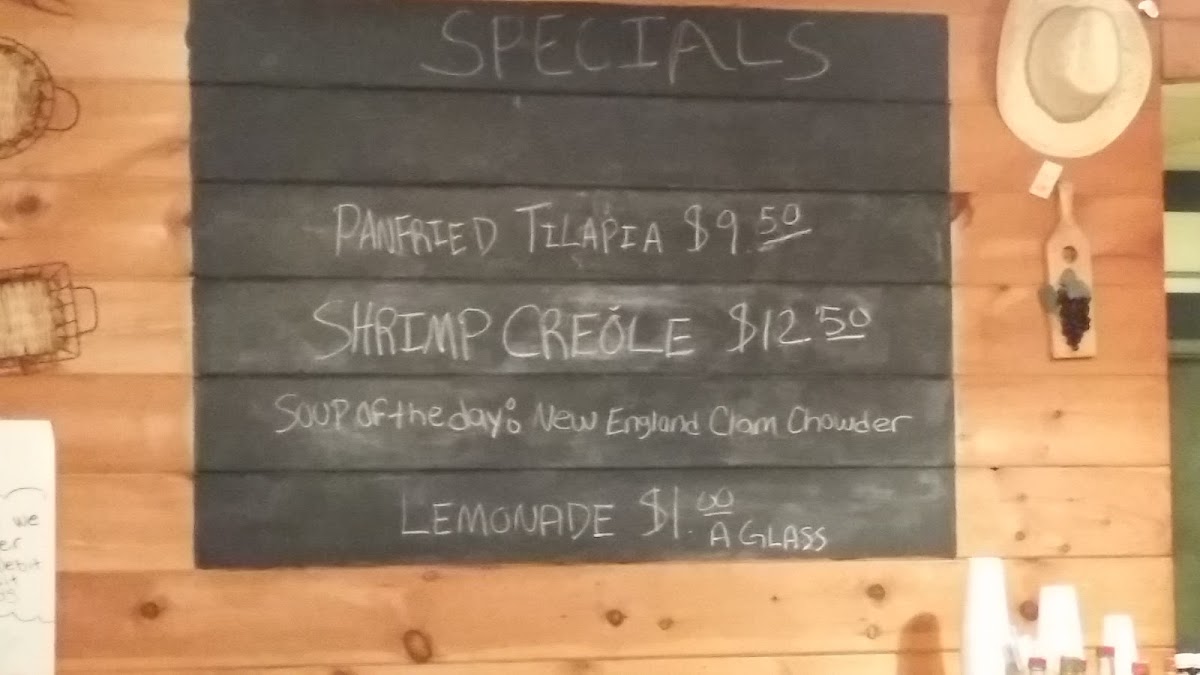 SPECIALS
PANFRIED TILAPIA $9.50
SHRIMP CREOLE $12.50
SOUP of the day: New England Clam Chowder
LEMONADE $1.00
A GLASS
we